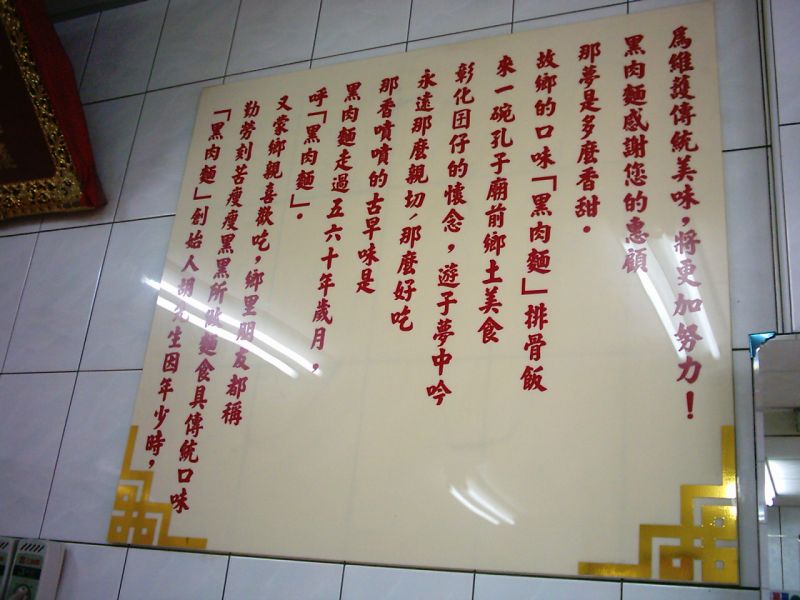 「黑肉麵」創始人胡先生因年少時，
勤勞刻苦瘦瘦黑黑所做麵食具傳統口味
又蒙鄉親喜歡吃，鄉里朋友都稱
呼「黑肉麵」。
黑肉麵走過五六十年歲月，
那香噴噴的古早味是
永遠那麼親切，那麼好吃
彰化囝仔的懷念，遊子夢中吟
來一碗孔子廟前鄉土美食
故鄉的口味「黑肉麵」排骨飯
那夢是多麼香甜。
黑肉麵感謝您的惠顧
為維護傳統美味，將更加努力！